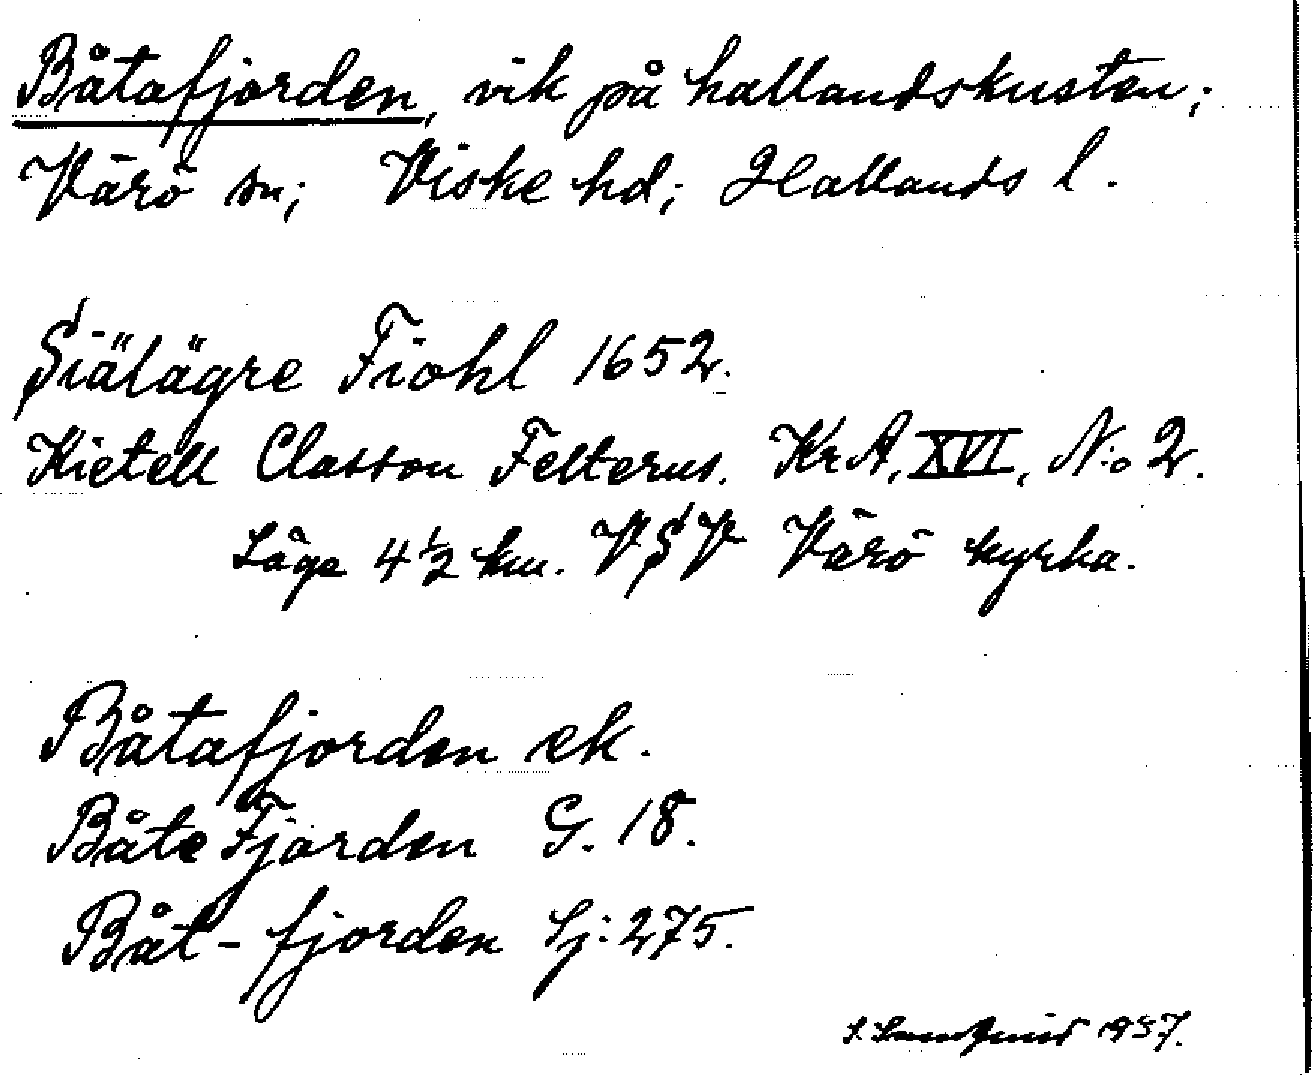 Båtafjorden, vik på hallandskusten;
Värö sn; Viske hd; Hallands l.
Siälägre Fiohl 1652.
Kietell Classon Felterus. KrA, XVI, No 2.
Läge 4 ½ km. VSV Värö kyrka.
Båtafjorden ek.
Båte Fjorden G. 18.
Båt-fjorden Sj: 275.
1937.